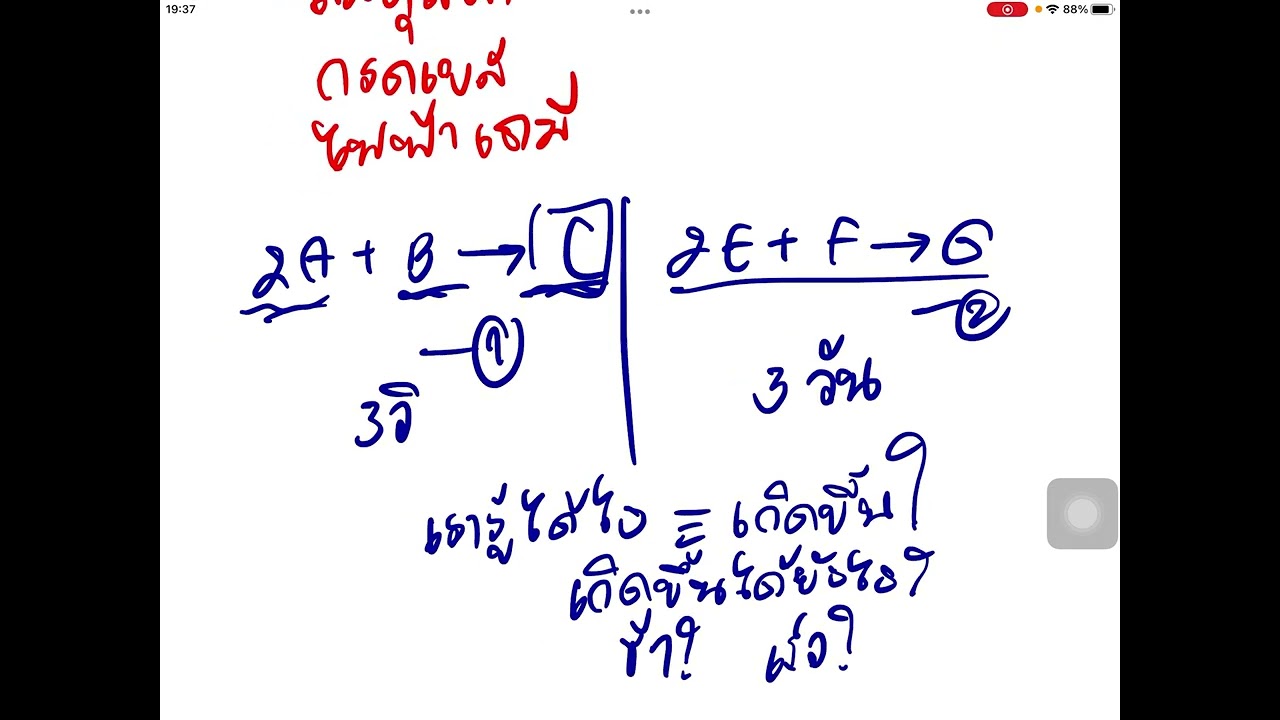 19:37
88%
กรดเบส
ไฟฟ้าเคมี
2A + B → C
2E + F → G
1
2
3วิ
3 วัน
เรารู้ได้ไง = เกิดขึ้น?
เกิดขึ้นได้ยังไง?
ช้า? เร็ว?